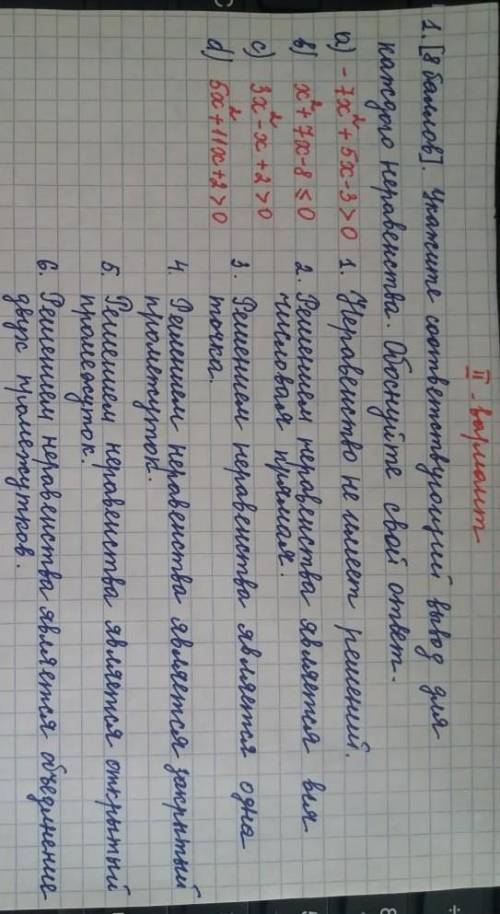 II - вариант
1. [8 баллов]. Укажите соответствующий вывод для
каждого неравенства. Обоснуйте свой ответ.
a) -7x²+5x-3>0 1. Неравенство не имеет решений.
b) x²+7x-8≤0 2. Решением неравенства является вся
числовая прямая.
c) 3x²-x+2>0 3. Решением неравенства является одна
точка.
d) 5x²+11x+2>0
4. Решением неравенства является закрытый
промежуток.
5. Решением неравенства является открытый
промежуток.
6. Решением неравенства является объединение
двух промежутков.